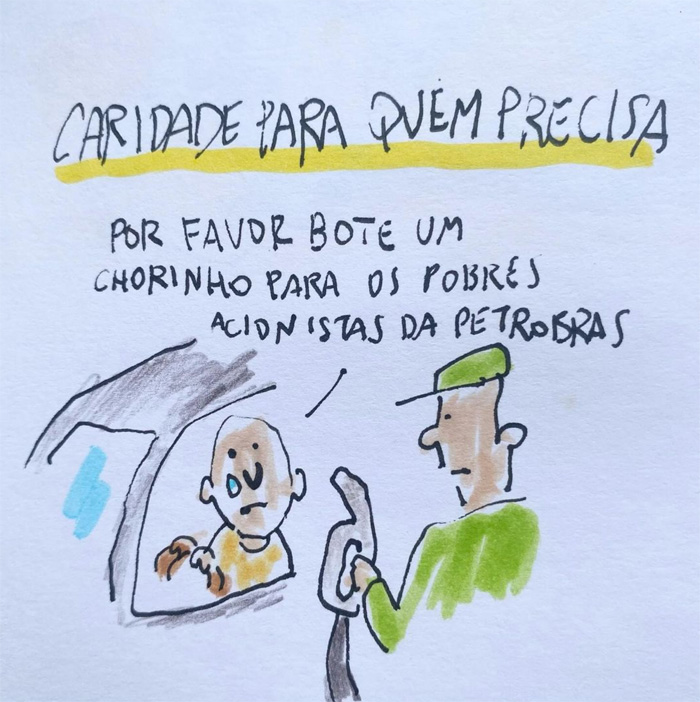 CARIDADE PARA QUEM PRECISA
POR FAVOR BOTE UM
CHORINHO PARA OS POBRES
ACIONISTAS DA PETROBRAS